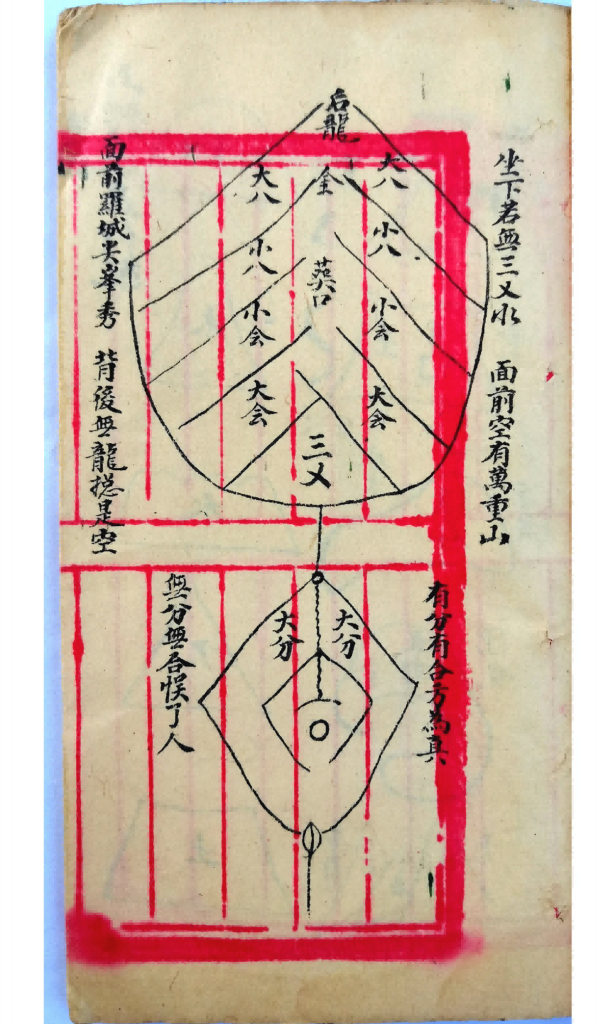 坐下若無三乂水 面前空有萬重山
后龍
大八
全
大八
小八
葬口
小八
小会
小会
大会
大会
三乂
面前羅城尖峯秀 背後無龍捴是空
有分有合方為真
大分
大分
無分無合悮了人